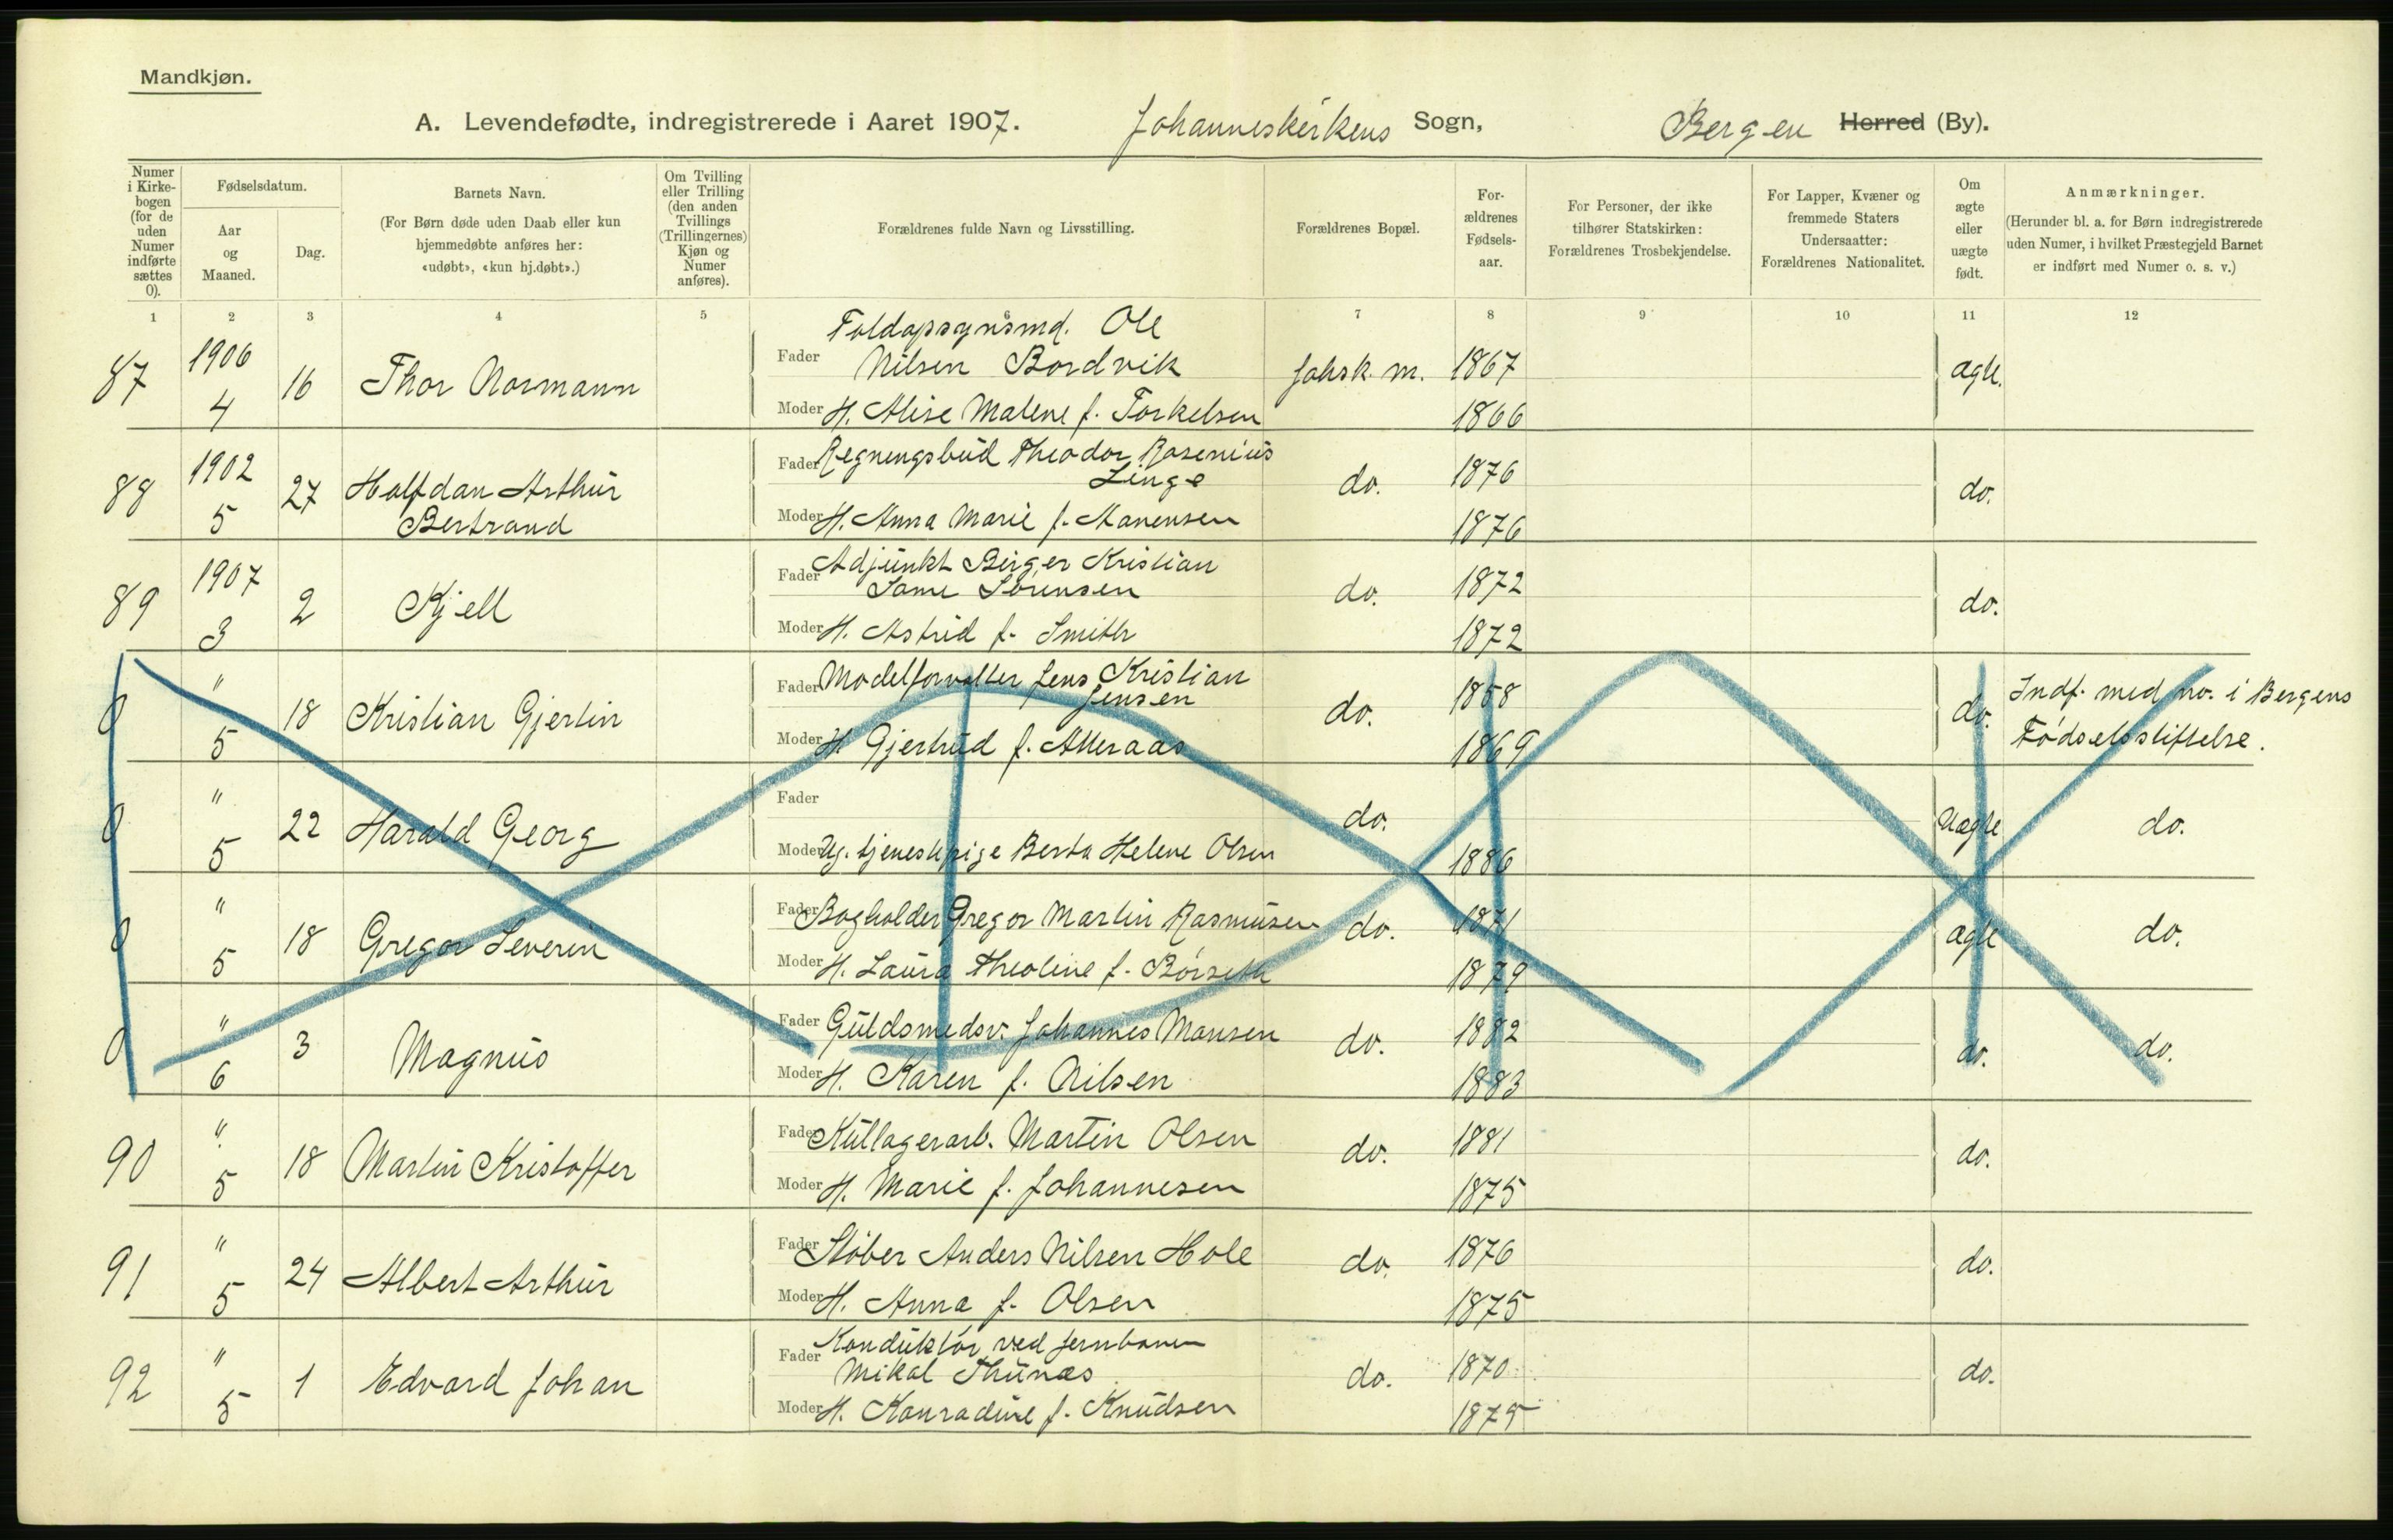 Mandkjøn.
A. Levendefødte, indregistrerede i Aaret 1907. Johanneskirkens Sogn, Bergen Herred (By).
Numer i Kirkebogen (for de uden Numer indførte sættes 0).
Fødselsdatum.
Aar og Maaned.
Dag.
Barnets Navn.
(For Børn døde uden Daab eller kun hjemmedøbte anføres her: «udøbt», «kun hj.døbt».)
Om Tvilling eller Trilling (den anden Tvillings (Trillingernes) Kjøn og Numer anføres).
Forældrenes fulde Navn og Livsstilling.
Forældrenes Bopæl.
Forældrenes Fødselsaar.
For Personer, der ikke tilhører Statskirken: Forældrenes Trosbekjendelse.
For Lapper, Kvæner og fremmede Staters Undersaatter: Forældrenes Nationalitet.
Om ægte eller uægte født.
Anmærkninger.
(Herunder bl. a. for Børn indregistrerede uden Numer, i hvilket Præstegjeld Barnet er indført med Numer o. s. v.)
1 2 3 4 5 6 7 8 9 10 11 12
87 1906 4 16 Thor Normann
Fader Toldopsynsmd. Ole
Nilsen Bordvik Johsk. m. 1867 ægte.
Moder H. Alise Malene f. Torkelsen 1866
88 1902 5 27 Halfdan Arthur
Bertrand
Fader Regningsbud Theodor Rosenius
Linge do. 1876 do.
Moder H. Anna Marie f. 1876
89 1907 3 2 Kjell
Fader Adjunkt Birger Kristian
Same Sørensen do. 1872 do.
Moder H. Astrid f. Smith 1872
0 " 5 18 Kristian Gjertin
Fader Modelforvalter Jens Kristian
Jensen do. 1858 do. Indf. med no. i Bergens
Moder H. Gjertrud f. Alleraas 1869 Fødselsstiftelse.
0 " 5 22 Harald Georg
Fader do. Uægte do.
Moder Ug. tjenestepige Berta Helene Olsen 1886
0 " 5 18 Gregor Severin
Fader Bogholder Gregor Martin Rasmusen do. 1871 ægte do.
Moder H. Laura Theoline f. Børseth 1879
0 " 6 3 Magnus
Fader Guldsmedsv. Johannes Monsen do. 1882 do. do.
Moder H. Karen f. Nilsen 1883
90 " 5 18 Martin Kristoffer
Fader Kullagerarb. Martin Olsen do. 1881 do.
Moder H. Marie f. Johannesen 1875
91 " 5 24 Albert Arthur
Fader Støber Anders Nilsen Hole do. 1876 do.
Moder H. Anna f. Olsen 1875
92 " 5 1 Edvard Johan
Fader Konduktør ved Jernbanen
Mikal Thunæs do. 1870 do.
Moder H. Konradine f. Knudsen 1875